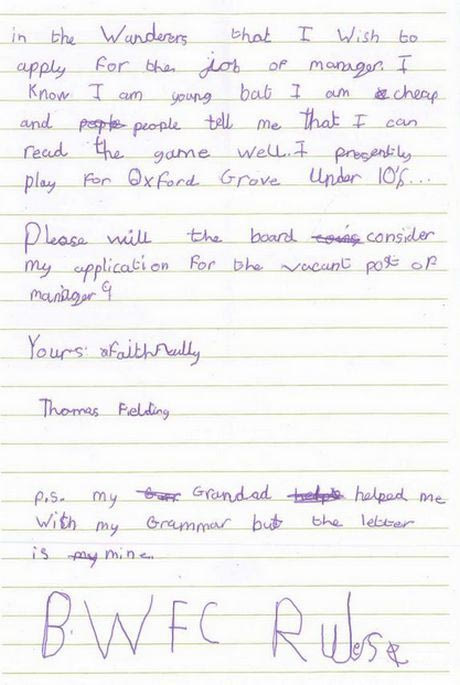 in the Wanderers that I Wish to
apply for the job of manager. I
Know I am young bat I am cheap
and people people tell me that I can
read the game well. I presently
play for Oxford Grove Under 10's...
Please will the board consider
my application for the vacant post of
manager
Yours Faithfully
Thomas Fielding
p.s. my Grandad helped me
With my Grammar but the letter
is my mine.
B.W F C Rules